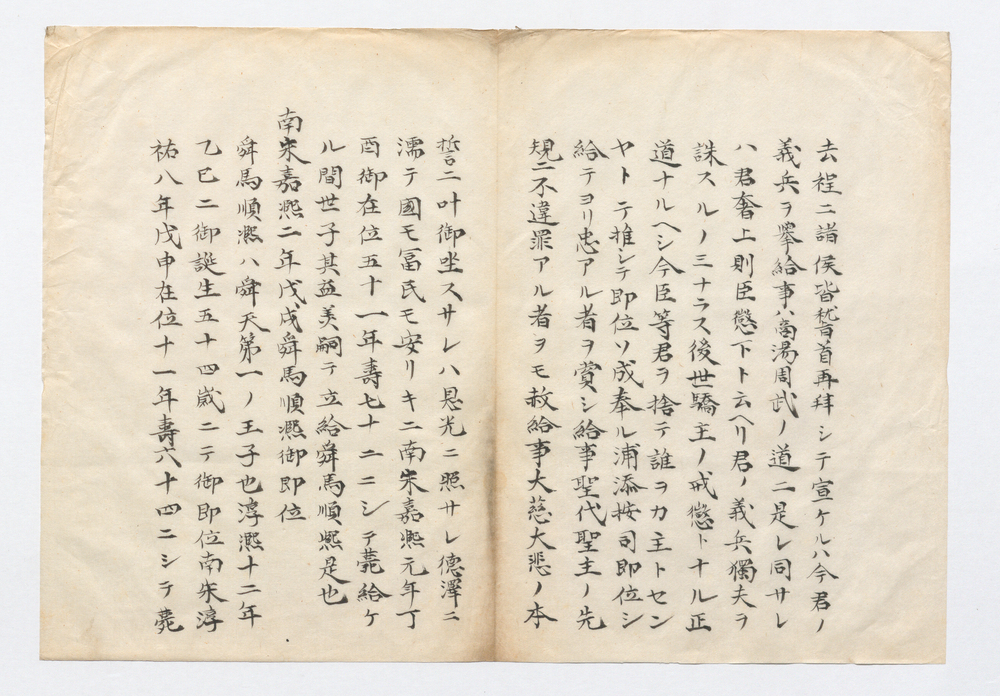 去程ニ諸侯皆稽首再拜シテ宣ケルハ今君ノ
義兵ヲ擧給事ハ商湯周武ノ道ニ是レ同サレ
ハ君奢上則臣懲下ト云ヘリ君ノ義兵獨夫ヲ
誅スルノミナラス後世驕主ノ戒懲トナル正
道ナルヘシ今臣等君ヲ捨テ誰ヲカ主トセン
ヤトテ推シテ即位ソ成奉ル浦添按司即位シ
給テヨリ忠アル者ヲ賞シ給事聖代聖主ノ先
規ニ不違罪アル者ヲモ赦給事大慈大悲ノ本
誓ニ叶御坐スサレハ恩光ニ照サレ德澤ニ
濡テ國モ冨民モ安リキニ南宋嘉熙元年丁
酉御在位五十一年壽七十二ニシテ薨給ケ
ル間世子其益美嗣テ立給舜馬順熙是也
南宋嘉熙二年戊戌舜馬順熙御即位
舜馬順熙ハ舜天第一ノ王子也淳熙十二年
乙巳ニ御誕生五十四歳ニテ御即位南宋淳
祐八年戊申在位十一年壽六十四ニシテ薨